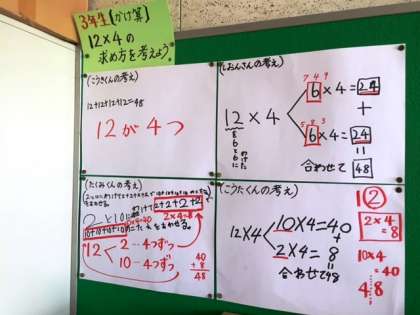 3年生【かけ算】
12×4の
求め方を考えよう
(こうきくんの考え)
12+12+12+12=48
12が4つ
(しおんさんの考え)
12×4
6×4=24
+
6×4=24
=
合わせて 48
(たくみくんの考え)
2と10に
2+2+2+2
10+10+10+10
2×4=8
12
2…4つずつ
10…4つずつ
40
+8
48
(こうたくんの考え)
12×4
10×4=40
+
2×4=8
合わせて48
1②
2×4
=8
10×4
=40
48